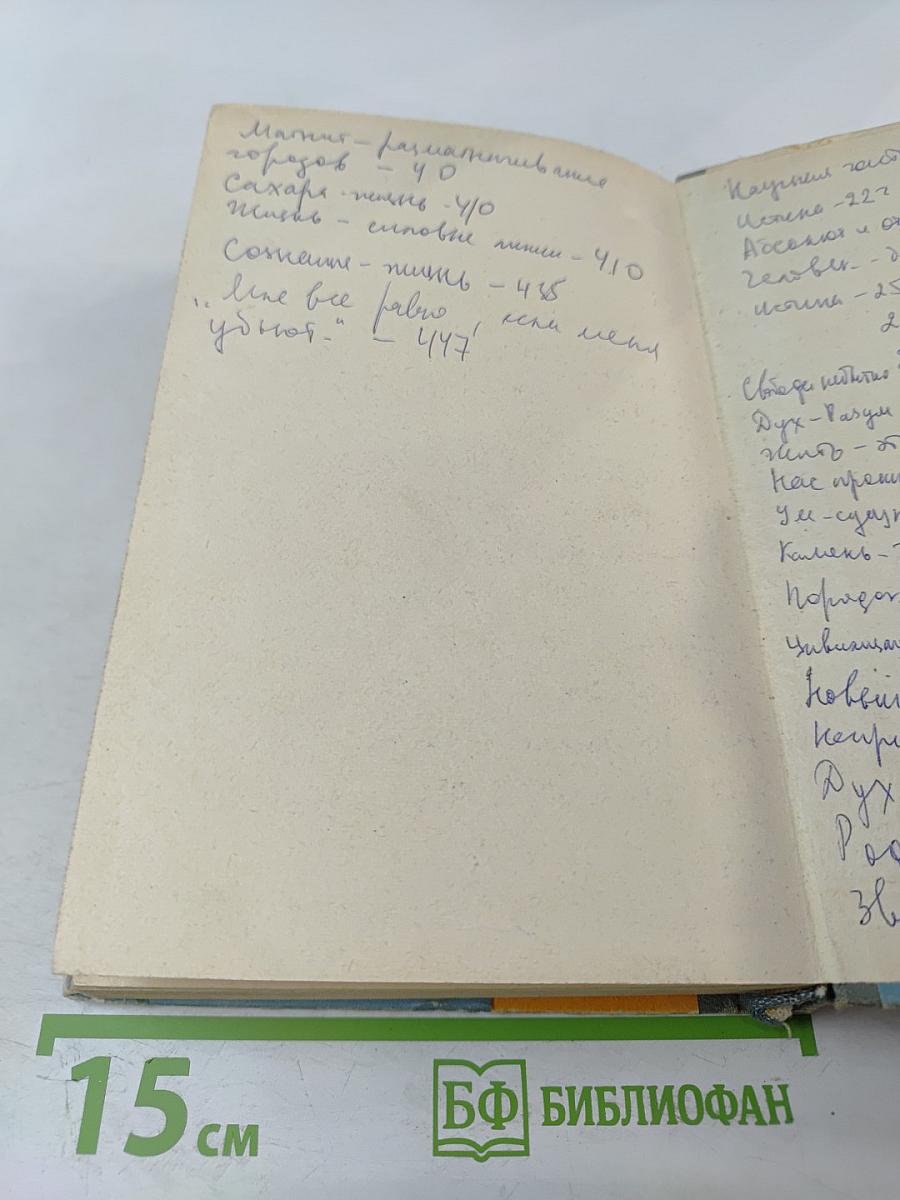 Магнит – размагничивание
городов – 40
Сахара – жизнь – 410
Жизнь – силовые линии – 410
Сознание – жизнь – 435
„Мне все равно, если меня
убьют." – 447
Научная
Истина – 22
Абсолют и от
Человек –
истина – 25
2
Дух – Разум
жить – эт
Нас прони
Ум –
Камень –
Порядок
Цивилизац
Новейш
Непр
Дух
Роо
Зв
15 см
БФ БИБЛИОФАН